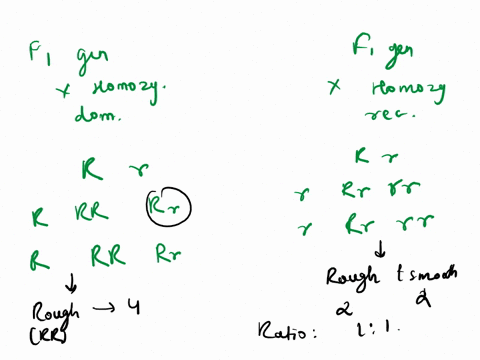 F1 gen
x Homozy.
dom.
R r
R RR Rr
R RR Rr
Rough → 4
(RR)
F1 gen
x Homozy
rec.
R r
r Rr rr
r Rr rr
Rough & smooth
2 2
Ratio: 1:1.